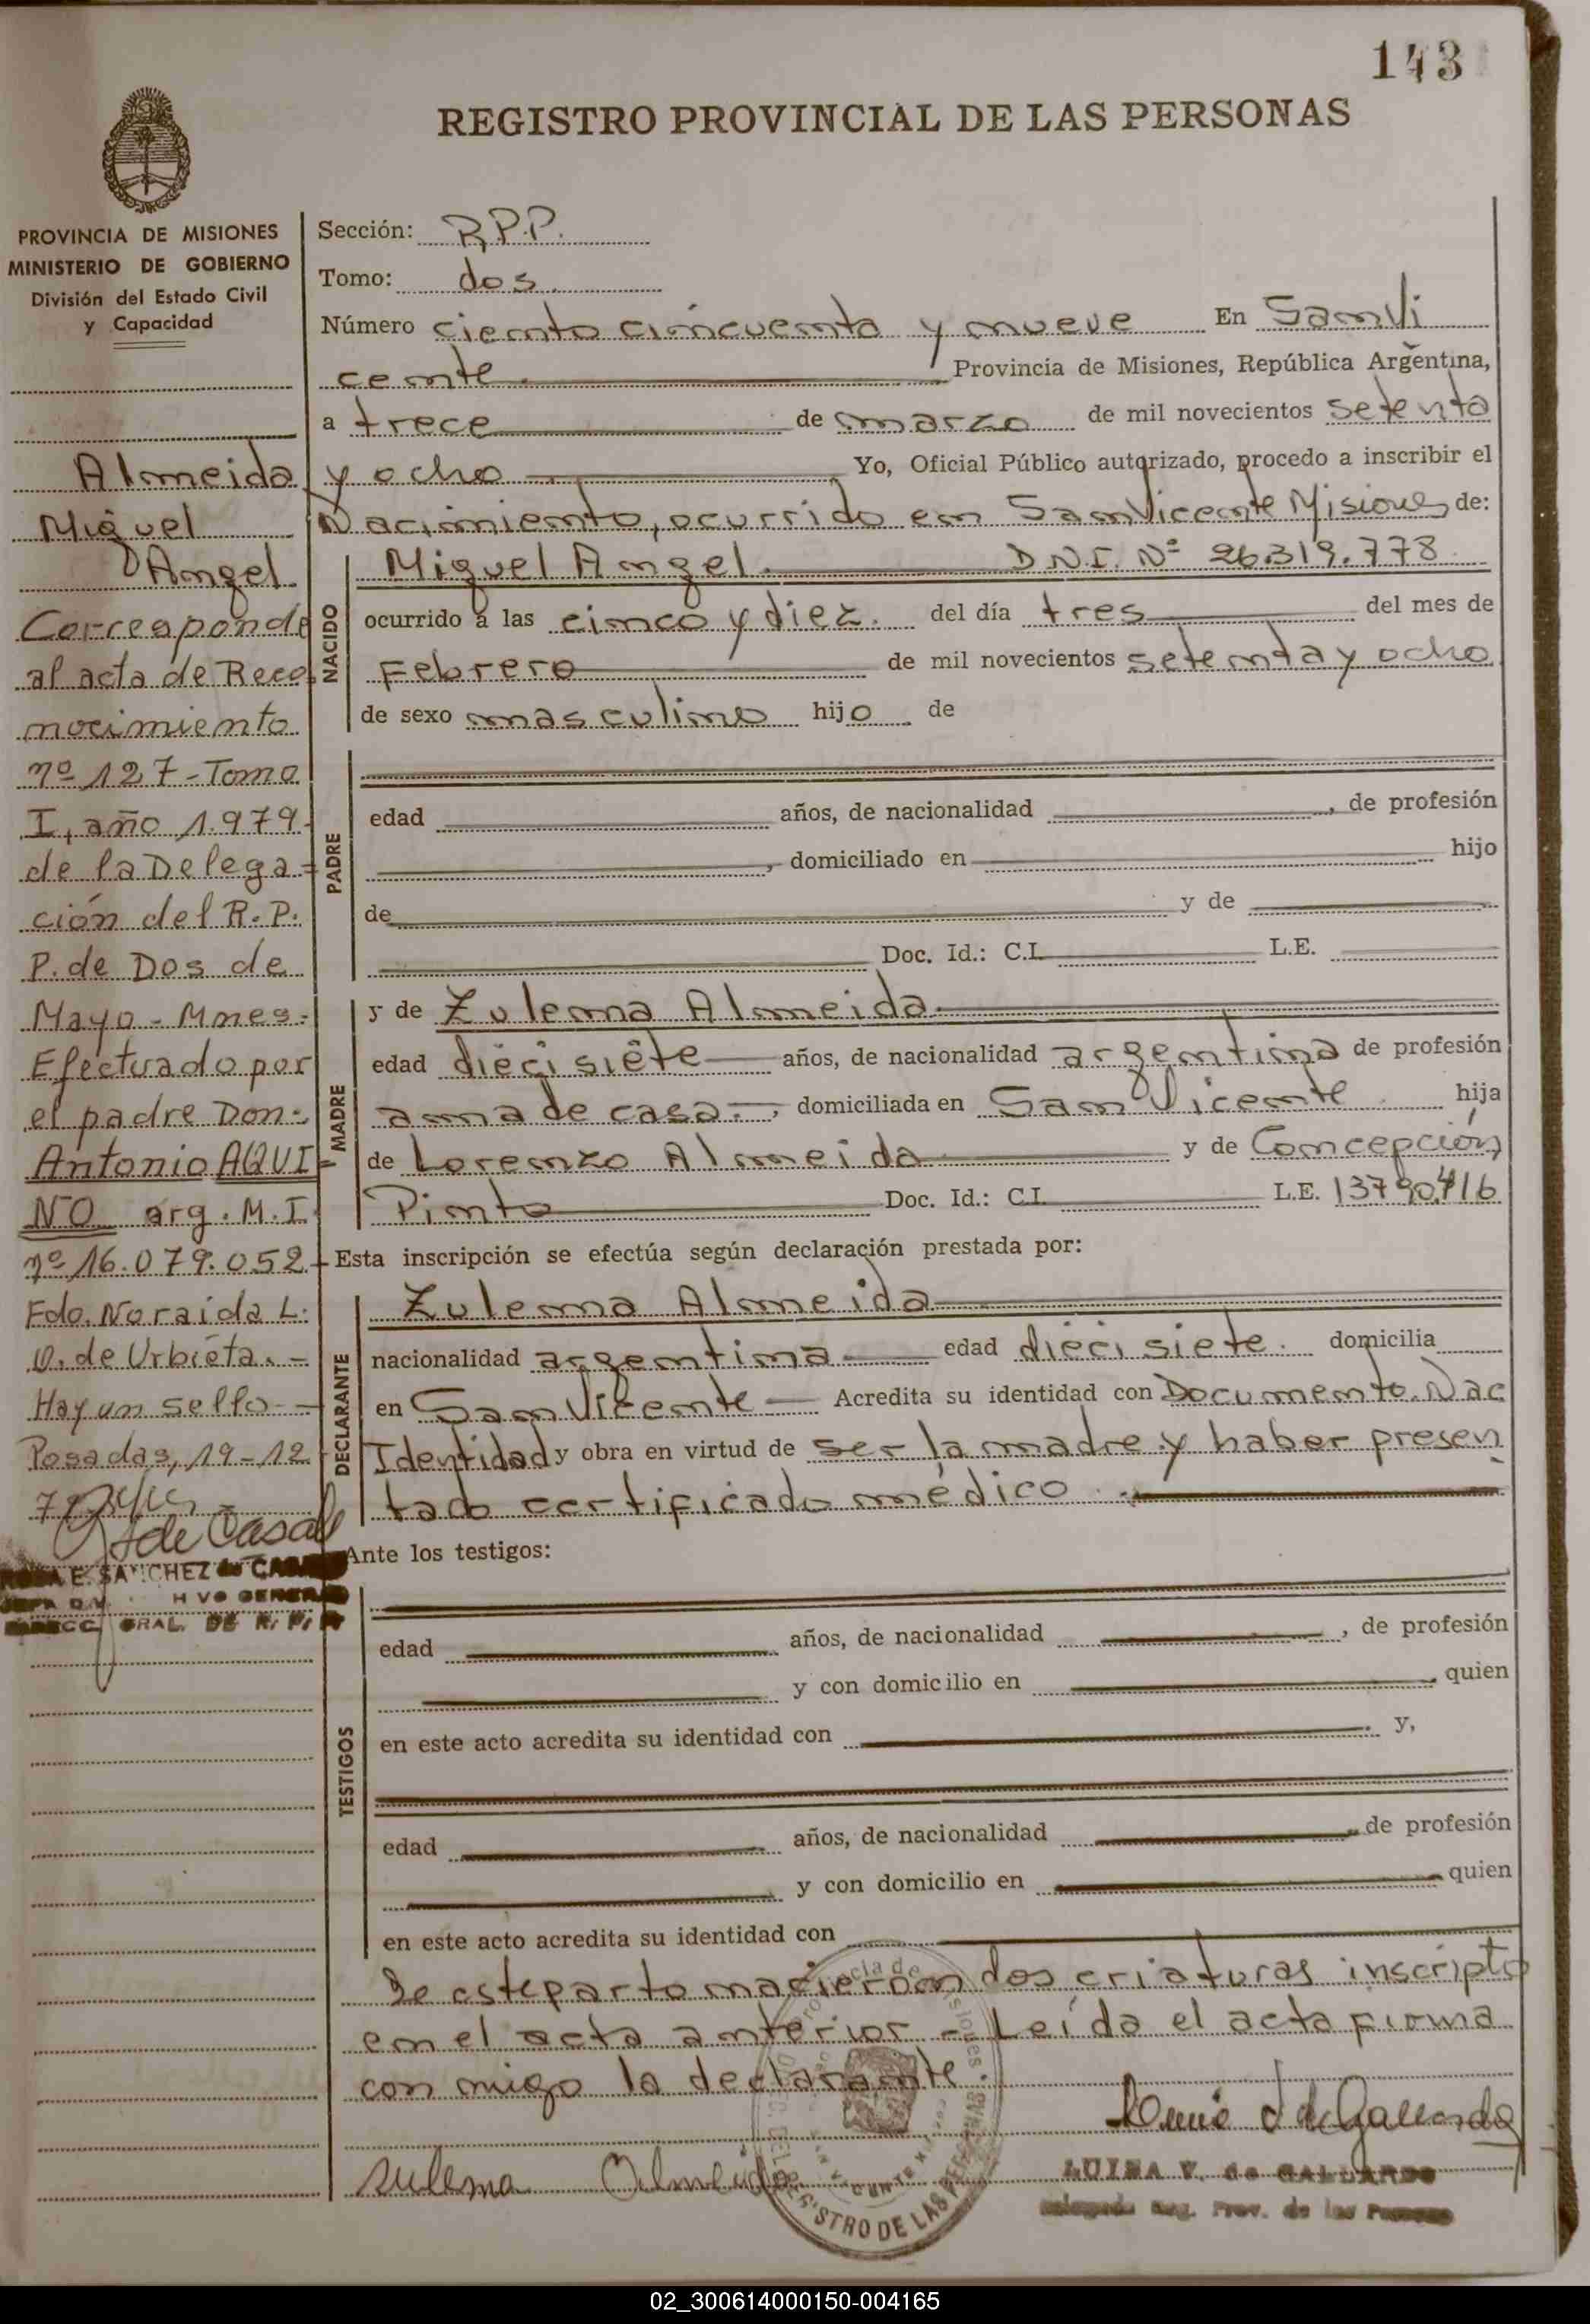 143
REGISTRO PROVINCIAL DE LAS PERSONAS
PROVINCIA DE MISIONES
MINISTERIO DE GOBIERNO
División del Estado Civil
y Capacidad
Almeida
Miguel
Angel
Corresponde
al acta de Reco
nocimiento
nº 127 - Tomo
I, año 1.979-
de la Delega=
ción del R.P.
P. de Dos de
Mayo - Mnes.-
Efectuado por
el padre Don:
Antonio AQUI=
NO arg. M.I.
nº 16.079.052-
Fdo. Noraida L.
O. de Urbieta. -
Hay un sello - -
Posadas, 19-12-
de Casa
E. SANCHEZ de
GRAL. DE R. P.
Sección: R.P.P.
Tomo: dos.
Número ciento cincuenta y nueve En San Vi
cente. Provincia de Misiones, República Argentina,
a trece de marzo de mil novecientos setenta
y ocho Yo, Oficial Público autorizado, procedo a inscribir el
Nacimiento, ocurrido en San Vicente Misiones de:
NACIDO
Miguel Angel. D.N.I. Nº 26.319.778
ocurrido a las cinco y diez. del día tres del mes de
Febrero de mil novecientos setenta y ocho
de sexo masculino hijo de
PADRE
edad años, de nacionalidad , de profesión
, domiciliado en hijo
de y de
Doc. Id.: C.I. L.E.
MADRE
y de Zulema Almeida
edad diecisiete años, de nacionalidad argentina de profesión
ama de casa.-, domiciliada en San Vicente hija
de Lorenzo Almeida y de Concepción
Pinto Doc. Id.: C.I. L.E. 13790.416
Esta inscripción se efectúa según declaración prestada por:
DECLARANTE
Zulema Almeida
nacionalidad argentina edad diecisiete. domicilia
en San Vicente Acredita su identidad con Documento. Nac
Identidad y obra en virtud de ser la madre y haber presen
tado certificado médico.
Ante los testigos:
TESTIGOS
edad años, de nacionalidad , de profesión
y con domicilio en quien
en este acto acredita su identidad con y,
edad años, de nacionalidad de profesión
y con domicilio en quien
en este acto acredita su identidad con
De este parto nacieron dos criaturas inscripto
en el acta anterior - Leída el acta firma
con migo la declarante.
sulema Almeida
LUISA V. de GALLARDO
Delegada Reg. Prov. de las Personas
02_300614000150-004165